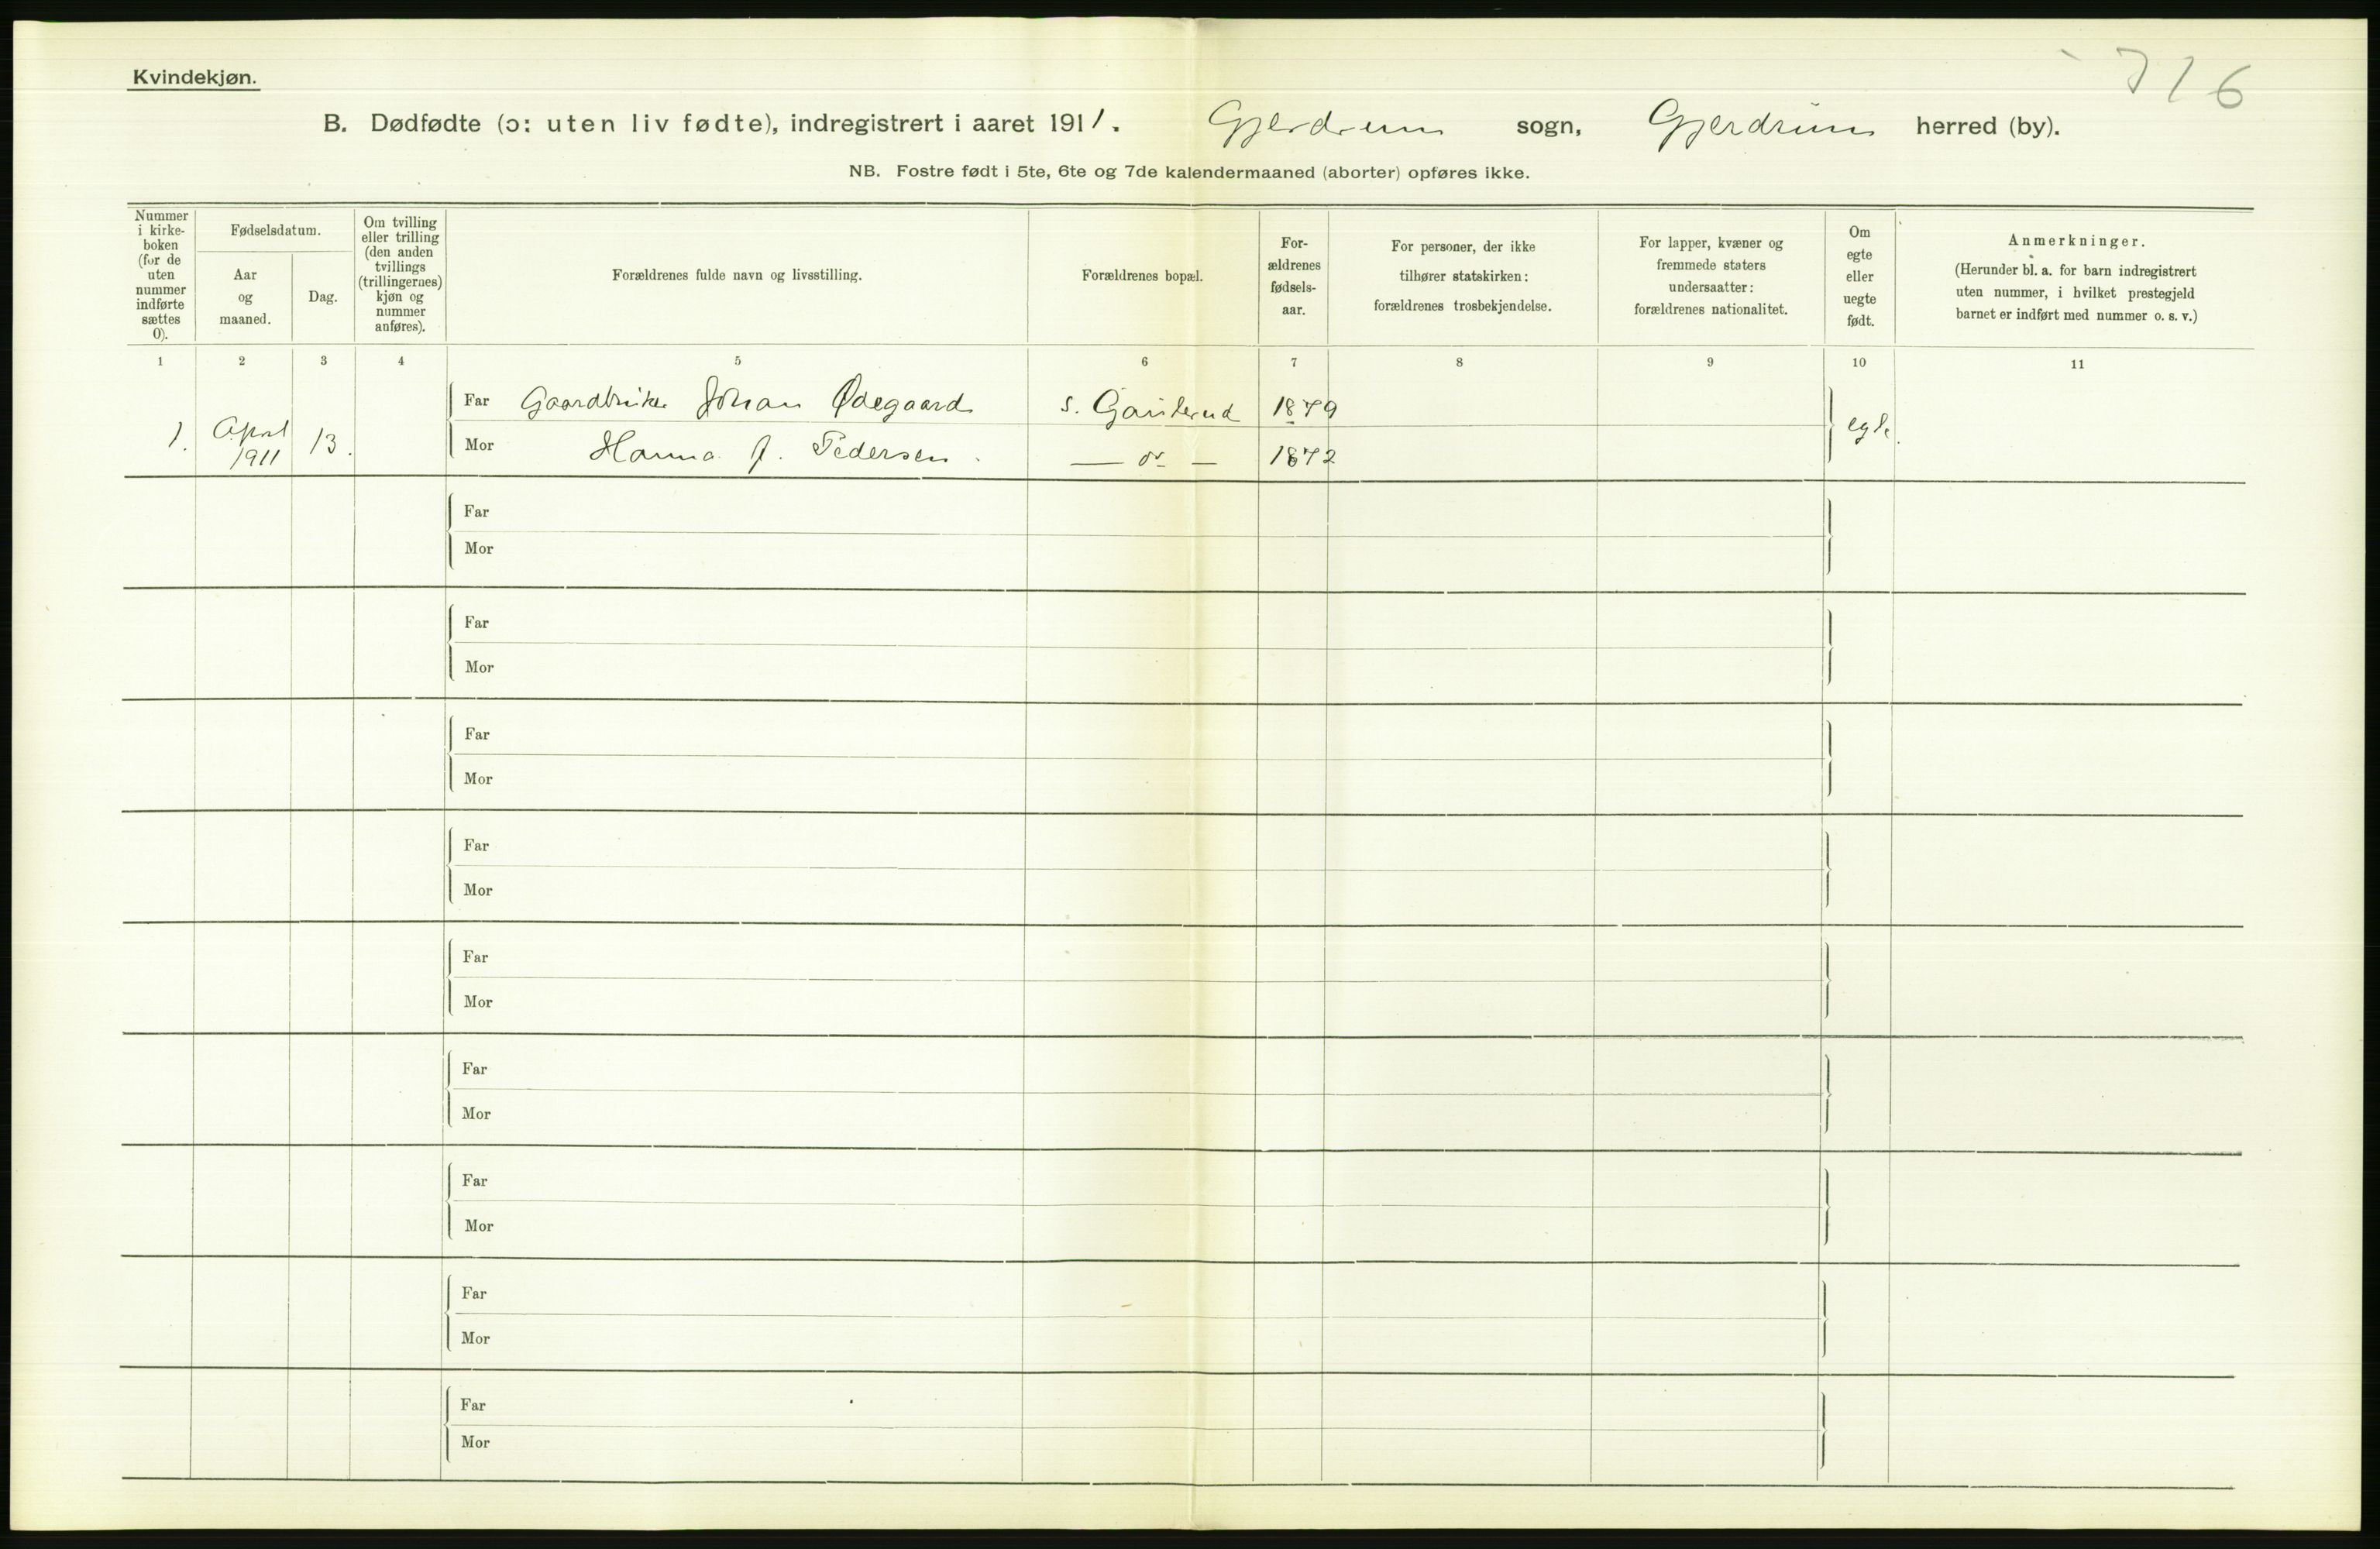 Kvindekjøn.
716
B. Dødfødte (ɔ: uten liv fødte), indregistrert i aaret 1911. Gjerdrum sogn, Gjerdrum herred (by).
NB. Fostre født i 5te, 6te og 7de kalendermaaned (aborter) opføres ikke.
Nummer
i kirke-
boken
(for de
uten
nummer
indførte
sættes
0).
Fødselsdatum.
Aar
og
maaned.
Dag.
Om tvilling
eller trilling
(den anden
tvillings
(trillingernes)
kjøn og
nummer
anføres).
Forældrenes fulde navn og livsstilling.
Forældrenes bopæl.
For-
ældrenes
fødsels-
aar.
For personer, der ikke
tilhører statskirken:
forældrenes trosbekjendelse.
For lapper, kvæner og
fremmede staters
undersaatter:
forældrenes nationalitet.
Om
egte
eller
uegte
født.
Anmerkninger.
(Herunder bl. a. for barn indregistrert
uten nummer, i hvilket prestegjeld
barnet er indført med nummer o. s. v.)
1 2 3 4 5 6 7 8 9 10 11
Far Gaardbruker Johan Ødegaard s. Gauterud 1879
1. April 1911 13. egte.
Mor Hanna J. Pedersen. — do — 1872
Far
Mor
Far
Mor
Far
Mor
Far
Mor
Far
Mor
Far
Mor
Far
Mor
Far
Mor
Far
Mor